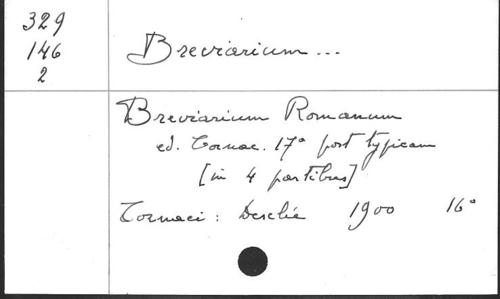 329
146
2
Breviarium...
Breviarium Romanum
ed. Tornac. 17a post typicam
[in 4 partibus]
Tornaci: Desclée 1900 16°